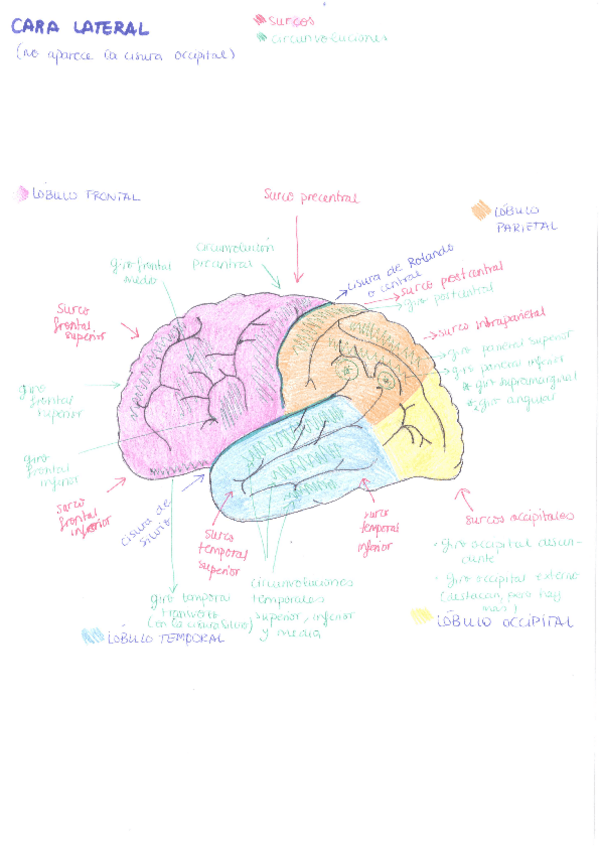 CARA LATERAL
(no aparece la cisura occipital)
surcos
circunvoluciones
LÓBULO FRONTAL
Surco precentral
LÓBULO
PARIETAL
circunvolución
precentral
giro frontal
medio
cisura de Rolando
o central
surco postcentral
giro postcentral
surco
frontal
superior
surco intraparietal
giro parietal superior
giro parietal inferior
* giro supramarginal
* giro angular
giro
frontal
superior
giro
frontal
inferior
surco
frontal
inferior
cisura de
Silvio
surco
temporal
superior
surco
temporal
inferior
surcos occipitales
- giro occipital
- giro occipital externo
(destacan, pero hay
más)
giro temporal
(en la cisura Silvio)
circunvoluciones
temporales
superior, inferior
y media
LÓBULO TEMPORAL
LÓBULO OCCIPITAL